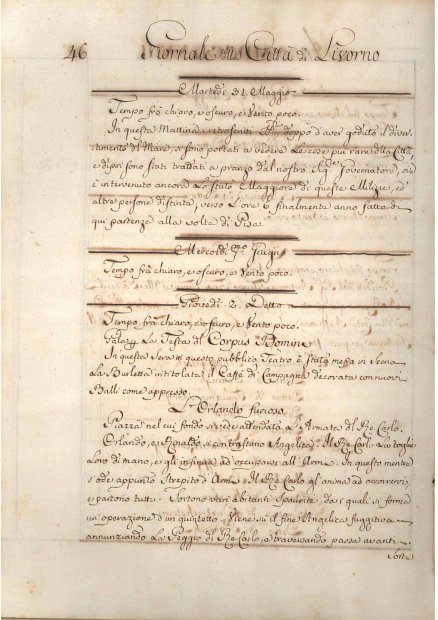 46 Giornale della Città di Livorno
Martedì 31. Maggio
Tempo frà chiaro, e oscuro, e Vento poco.
In questa Mattina i retroscritti doppo d'aver goduto il diver-
timento di Mare, si sono portati a vedere Le cose più rare della Città
e dipoi sono stati trattati a pranzo dal nostro Sig:re Governatore, ove
è intervenuto ancora Lo stato Maggiore di queste Milizie, ed
altre persone distinte; verso L'ore e finalmente anno fatto di
qui partenza alla volta di Pisa.
Mercoldì p:mo Giugno
Tempo frà chiaro, e oscuro, e Vento poco.
Giovedì 2. Detto
Tempo frà chiaro, e oscuro, e Vento poco.
Gala La Festa di Corpus Domini
In questa Sera in questo pubblico Teatro è stata messa in Scena
La Burletta intitolata il Caffè di Campagna decorata con nuovi
Balli come appresso.
L'Orlando furioso
Piazza nel cui fondo si vede attendata L'Armata del Re Carlo.
Orlando, e Rinaldo si contrastano Angelica. Il Re Carlo La toglie
Loro di mano, e gli insinua ad occuparsi all'Armi. In questo mentre
s'ode appunto Strepito d'Armi. Il Re Carlo gl'anima ad accorrervi,
e partono tutti. Sortono varj abitanti Spauriti, da i quali si forma
un'operazione d'un quintetto. Viene su il fine Angelica fuggitiva
annunziando La Peggio del Re Carlo, e traversando passa avanti.
Sorte